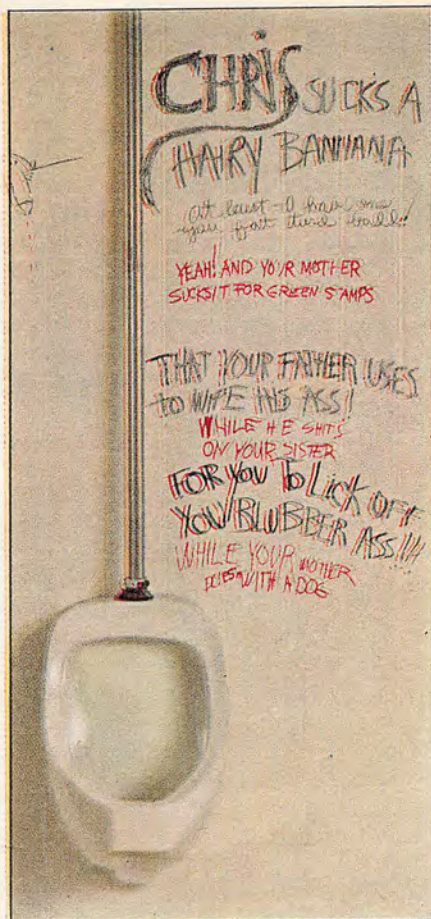 CHRIS SUCKS A
HAIRY BANNANA
At least I have one
you fat turd balls!
YEAH! AND YOUR MOTHER
SUCKS IT FOR GREEN STAMPS
THAT YOUR FATHER USES
to WIPE HIS ASS!
WHILE HE SHITS
ON YOUR SISTER
FOR YOU TO LICK OFF
YOU BLUBBER ASS!!!!
WHILE YOUR MOTHER
DOES WITH A DOG